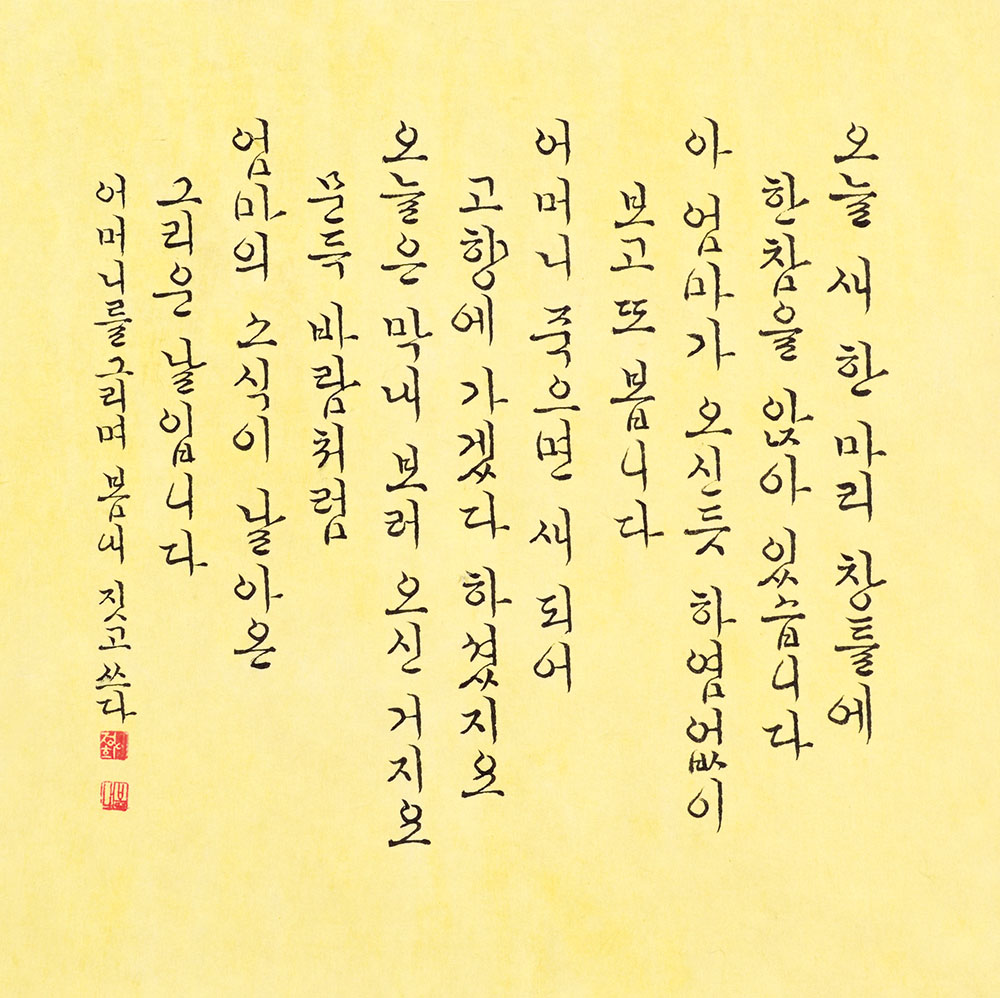 오늘 새 한 마리 창틀에
한참을 앉아 있습니다
아 엄마가 오신듯 하염없이
보고 또 봅니다
어머니 죽으면 새 되어
고향에 가겠다 하셨지요
오늘은 막내 보러 오신 거지요
문득 바람처럼
엄마의 소식이 날아온
그리운 날입니다
어머니를 그리며 봄내 짓고 쓰다